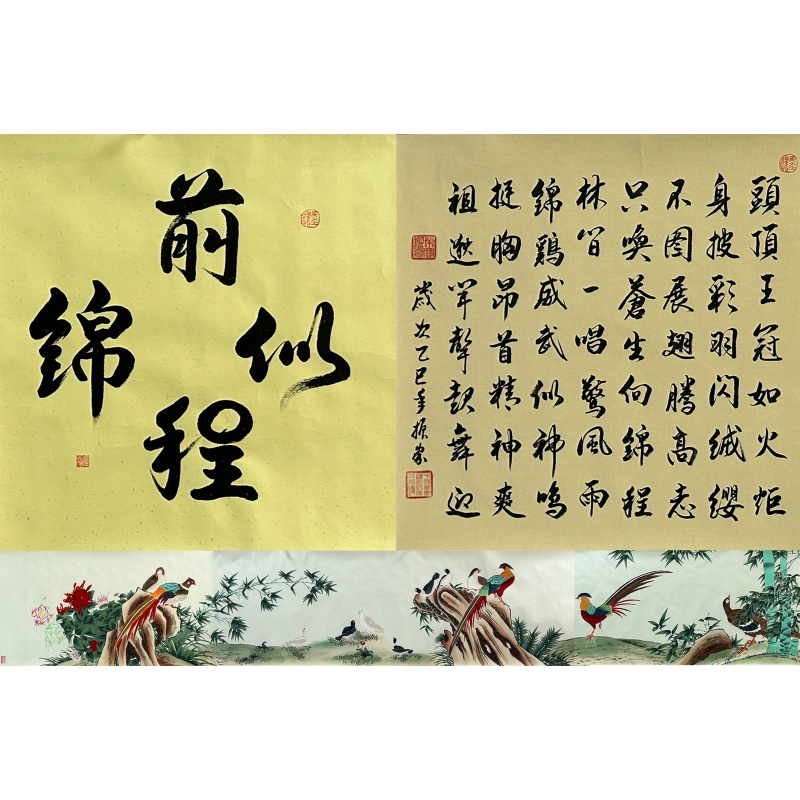 前程
似錦
頭頂王冠如火炬
身披彩羽闪绒纓
不图展翅騰高志
只喚蒼生向錦程
林间一唱驚風雨
錦鷄威武似神鳴
挺胸昂首精神爽
祖逖闻聲起舞迎
歲次乙巳年振